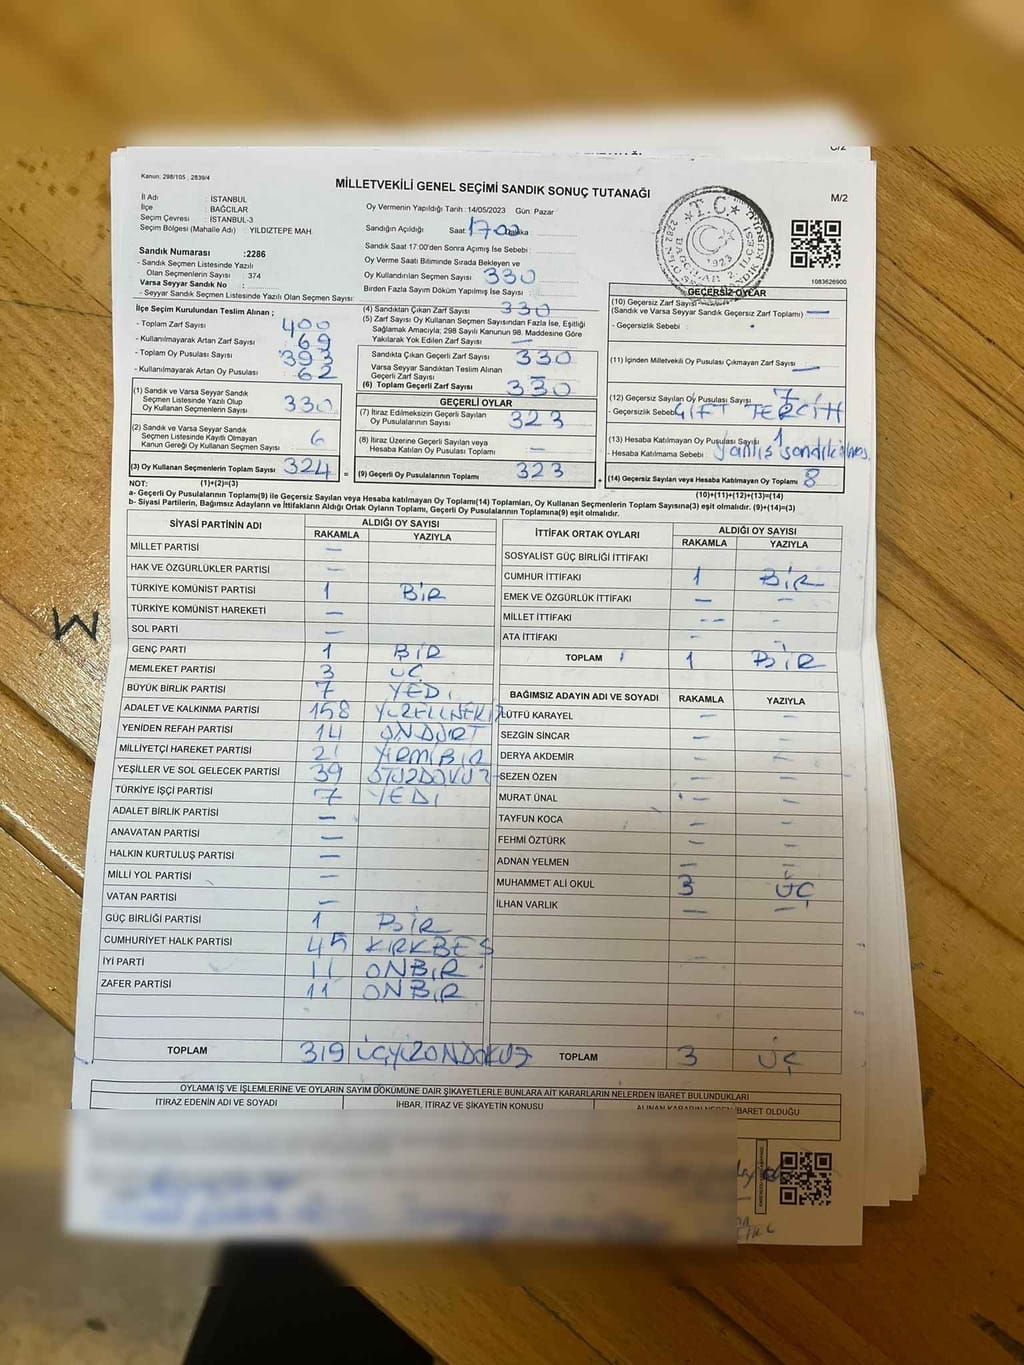 C/2
Kanun. 298/105 , 2839/4
MİLLETVEKİLİ GENEL SEÇİMİ SANDIK SONUÇ TUTANAĞI
M/2
İl Adı : İSTANBUL
İlçe : BAĞCILAR
Seçim Çevresi : İSTANBUL-3
Seçim Bölgesi (Mahalle Adı) : YILDIZTEPE MAH.
Sandık Numarası :2286
- Sandık Seçmen Listesinde Yazılı
Olan Seçmenlerin Sayısı : 374
Varsa Seyyar Sandık No :
- Seyyar Sandık Seçmen Listesinde Yazılı Olan Seçmen Sayısı:
Oy Vermenin Yapıldığı Tarih :14/05/2023 Gün: Pazar
Sandığın Açıldığı Saat 17 00 Dakika
Sandık Saat 17:00'den Sonra Açımış İse Sebebi :
Oy Verme Saati Bitiminde Sırada Bekleyen ve
Oy Kullandırılan Seçmen Sayısı : 330
Birden Fazla Sayım Döküm Yapılmış İse Sayısı :
T.C.
1923
1083626900
İlçe Seçim Kurulundan Teslim Alınan ;
- Toplam Zarf Sayısı : 400
- Kullanılmayarak Artan Zarf Sayısı : 69
- Toplam Oy Pusulası Sayısı : 393
- Kullanılmayarak Artan Oy Pusulası : 62
(1) Sandık ve Varsa Seyyar Sandık
Seçmen Listesinde Yazılı Olup
Oy Kullanan Seçmenlerin Sayısı 330
(2) Sandık ve Varsa Seyyar Sandık
Seçmen Listesinde Kayıtlı Olmayan
Kanun Gereği Oy Kullanan Seçmen Sayısı 6
(3) Oy Kullanan Seçmenlerin Toplam Sayısı 324 =
(4) Sandıktan Çıkan Zarf Sayısı 330
(5) Zarf Sayısı Oy Kullanan Seçmen Sayısından Fazla İse, Eşitliği
Sağlamak Amacıyla; 298 Sayılı Kanunun 98. Maddesine Göre
Yakılarak Yok Edilen Zarf Sayısı —
Sandıkta Çıkan Geçerli Zarf Sayısı 330
Varsa Seyyar Sandıktan Teslim Alınan
Geçerli Zarf Sayısı —
(6) Toplam Geçerli Zarf Sayısı 330
GEÇERLİ OYLAR
(7) İtiraz Edilmeksizin Geçerli Sayılan
Oy Pusulalarının Sayısı 323
(8) İtiraz Üzerine Geçerli Sayılan veya
Hesaba Katılan Oy Pusulası Toplamı —
(9) Geçerli Oy Pusulalarının Toplamı 323 +
GEÇERSİZ OYLAR
(10) Geçersiz Zarf Sayısı
(Sandık ve Varsa Seyyar Sandık Geçersiz Zarf Toplamı) —
- Geçersizlik Sebebi :
(11) İçinden Milletvekili Oy Pusulası Çıkmayan Zarf Sayısı —
(12) Geçersiz Sayılan Oy Pusulası Sayısı 7
- Geçersizlik Sebebi ÇİFT TERCİH
(13) Hesaba Katılmayan Oy Pusulası Sayısı 1
- Hesaba Katılmama Sebebi : yanlış sandık
(14) Geçersiz Sayılan veya Hesaba Katılmayan Oy Toplamı 8
NOT: (1)+(2)=(3)
(10)+(11)+(12)+(13)=(14)
a- Geçerli Oy Pusulalarının Toplamı(9) ile Geçersiz Sayılan veya Hesaba katılmayan Oy Toplamı(14) Toplamları, Oy Kullanan Seçmenlerin Toplam Sayısına(3) eşit olmalıdır. (9)+(14)=(3)
b- Siyasi Partilerin, Bağımsız Adayların ve İttifakların Aldığı Ortak Oyların Toplamı, Geçerli Oy Pusulalarının Toplamına(9) eşit olmalıdır.
SİYASİ PARTİNİN ADI ALDIĞI OY SAYISI
RAKAMLA YAZIYLA
MİLLET PARTİSİ —
HAK VE ÖZGÜRLÜKLER PARTİSİ —
TÜRKİYE KOMÜNİST PARTİSİ 1 BİR
TÜRKİYE KOMÜNİST HAREKETİ —
SOL PARTİ —
GENÇ PARTİ 1 BİR
MEMLEKET PARTİSİ 3 ÜÇ
BÜYÜK BİRLİK PARTİSİ 7 YEDİ
ADALET VE KALKINMA PARTİSİ 158 YÜZELLİSEKİZ
YENİDEN REFAH PARTİSİ 14 ONDÖRT
MİLLİYETÇİ HAREKET PARTİSİ 21 YİRMİBİR
YEŞİLLER VE SOL GELECEK PARTİSİ 39 OTUZDOKUZ
TÜRKİYE İŞÇİ PARTİSİ 7 YEDİ
ADALET BİRLİK PARTİSİ —
ANAVATAN PARTİSİ —
HALKIN KURTULUŞ PARTİSİ —
MİLLİ YOL PARTİSİ —
VATAN PARTİSİ —
GÜÇ BİRLİĞİ PARTİSİ 1 BİR
CUMHURİYET HALK PARTİSİ 45 KIRKBEŞ
İYİ PARTİ 11 ONBİR
ZAFER PARTİSİ 11 ONBİR
TOPLAM 319 ÜÇYÜZONDOKUZ
İTTİFAK ORTAK OYLARI ALDIĞI OY SAYISI
RAKAMLA YAZIYLA
SOSYALİST GÜÇ BİRLİĞİ İTTİFAKI
CUMHUR İTTİFAKI 1 BİR
EMEK VE ÖZGÜRLÜK İTTİFAKI — —
MİLLET İTTİFAKI --
ATA İTTİFAKI - -
TOPLAM 1 BİR
BAĞIMSIZ ADAYIN ADI VE SOYADI RAKAMLA YAZIYLA
LÜTFÜ KARAYEL — —
SEZGİN SİNCAR — —
DERYA AKDEMİR — —
SEZEN ÖZEN — —
MURAT ÜNAL — —
TAYFUN KOCA — —
FEHMİ ÖZTÜRK — —
ADNAN YELMEN — —
MUHAMMET ALİ OKUL 3 ÜÇ
İLHAN VARLIK — —
TOPLAM 3 ÜÇ
OYLAMA İŞ VE İŞLEMLERİNE VE OYLARIN SAYIM DÖKÜMÜNE DAİR ŞİKAYETLERLE BUNLARA AİT KARARLARIN NELERDEN İBARET BULUNDUKLARI
İTİRAZ EDENİN ADI VE SOYADI İHBAR, İTİRAZ VE ŞİKAYETİN KONUSU ALINAN KARARIN NEDEN İBARET OLDUĞU